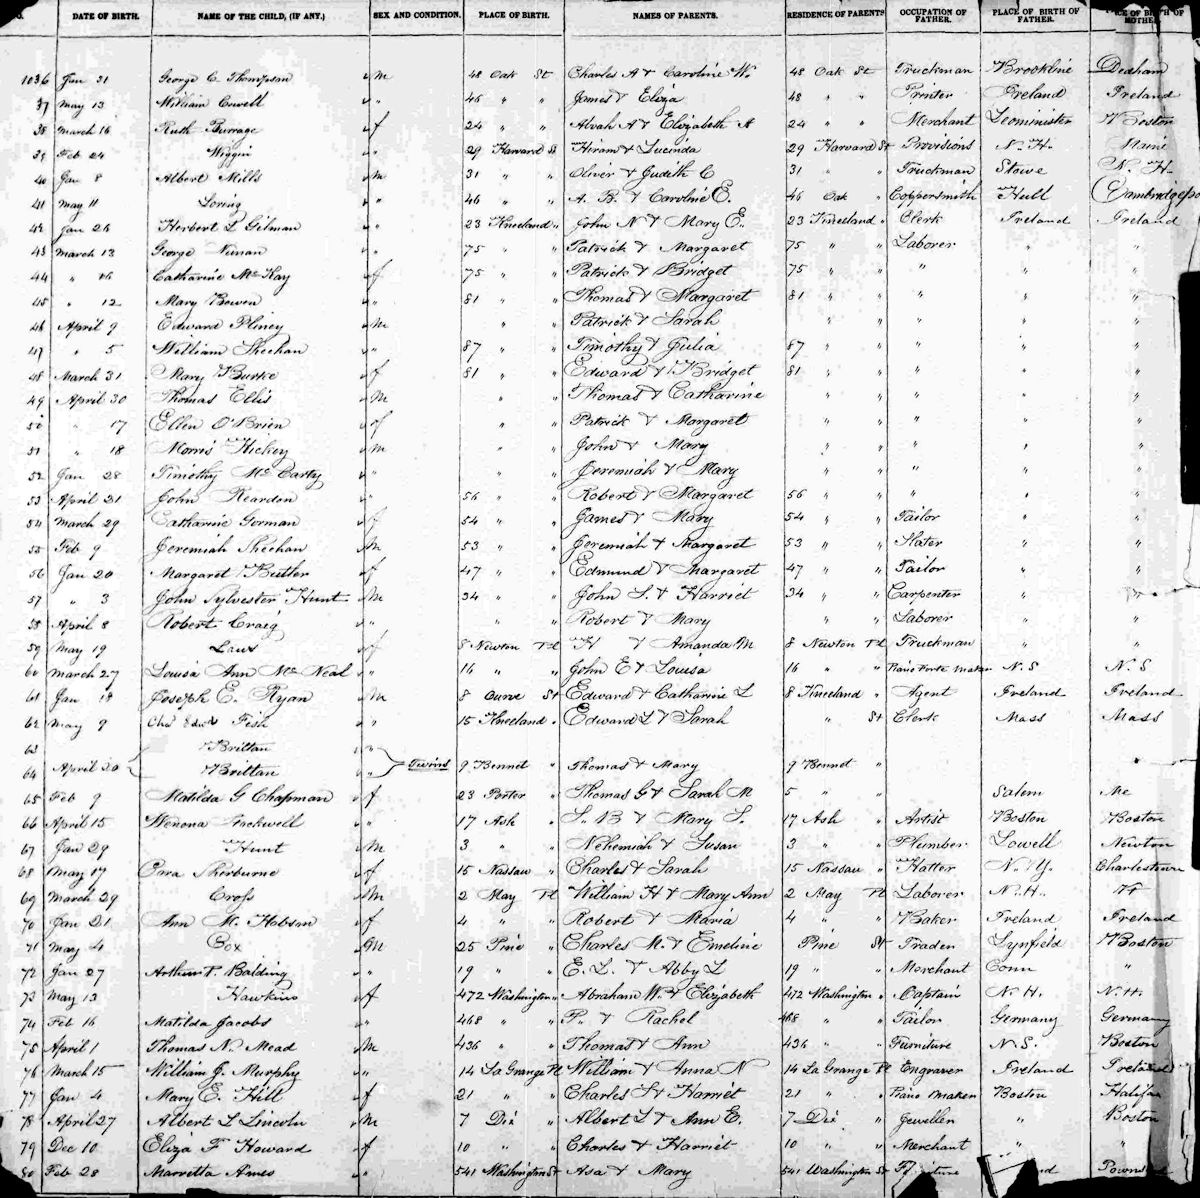 DATE OF BIRTH. NAME OF THE CHILD, (IF ANY.) SEX AND CONDITION. PLACE OF BIRTH. NAMES OF PARENTS. RESIDENCE OF PARENTS OCCUPATION OF FATHER. PLACE OF BIRTH OF FATHER. OF BIRTH OF MOTHER.
1036 Jan 31 George C. Thompson M 48 Oak St Charles A & Caroline W. 48 Oak St Truckman Brookline Dedham
37 May 13 William Cowell " 46 " " James & Eliza 48 " " Printer Ireland Ireland
38 March 16 Ruth Burrage f 24 " " Alvah A & Elizabeth A 24 " " Merchant Leominster Boston
39 Feb 24 Wiggin " 29 Harvard St Hiram & Lucinda 29 Harvard St Provisions N. H. Maine
40 Jan 8 Albert Mills M 31 " " Oliver & Judith C 31 " " Truckman Stowe N. H.
41 May 11 Loring " 46 " " A. B. & Caroline E. 46 Oak " Coppersmith Hull Cambridgepo
42 Jan 26 Herbert L Gilman " 23 Kneeland " John N & Mary E. 23 Kneeland " Clerk Ireland Ireland
43 March 13 George " 75 " " Patrick & Margaret 75 " " Laborer " "
44 " 16 Catharine McKay f 75 " " Patrick & Bridget 75 " " " " "
45 " 12 Mary Bowen " 81 " " Thomas & Margaret 81 " " " " "
46 April 9 Edward Pliney M " " Patrick & Sarah " " " " "
47 " 5 William Sheehan " 87 " " Timothy & Julia 87 " " " " "
48 March 31 Mary Burke f 81 " " Edward & Bridget 81 " " " " "
49 April 30 Thomas Ellis M " " Thomas & Catharine " " " " "
50 " 17 Ellen O'Brien f " " Patrick & Margaret " " " " "
51 " 18 Morris Hickey M " " John & Mary " " " " "
52 Jan 28 Timothy McCarty " " " Jeremiah & Mary " " " " "
53 April 21 John Reardon " 56 " " Robert & Margaret 56 " " " " "
54 March 29 Catharine Gorman f 54 " " James & Mary 54 " " Tailor " "
55 Feb 9 Jeremiah Sheehan M 53 " " Jeremiah & Margaret 53 " " Slater " "
56 Jan 20 Margaret Butler f 47 " " Edmund & Margaret 47 " " Tailor " "
57 " 3 John Sylvester Hunt M 34 " " John S. & Harriet 34 " " Carpenter "
58 April 8 Robert Craig " " " Robert & Mary " " Laborer " "
59 May 19 Laws f 8 Newton Pl H & Amanda M 8 Newton Pl Truckman " "
60 March 27 Louisa Ann McNeal " 16 " " John E & Louisa 16 " " Piano Forte Maker N. S N. S
61 Jan 18 Joseph E. Ryan M 8 Curve St Edward & Catharine L 8 Kneeland " Agent Ireland Ireland
62 May 9 Chs Edwd Fish " 15 Kneeland " Edward L & Sarah " St Clerk Mass Mass
63 Brittan "
64 April 20 Brittan " Twins 9 Bennet " Thomas & Mary 9 Bennet "
65 Feb 9 Matilda G Chapman f 23 Porter " Thomas G & Sarah M 5 " " Salem Me
66 April 15 Wenona " 17 Ash " S. B & Mary S. 17 Ash " Artist Boston Boston
67 Jan 29 Hunt M 3 " " Nehemiah & Susan 3 " " Plumber Lowell Newton
68 May 17 Cora Sherburne f 15 Nassau " Charles & Sarah 15 Nassau " Hatter N. Y. Charlestown
69 March 29 Cross M 2 May Pl William H & Mary Ann 2 May Pl Laborer N. H.
70 Jan 21 Ann M. Hobson f 4 " " Robert & Maria 4 " " Baker Ireland Ireland
71 May 4 Cox M 25 Pine " Charles M. & Emeline Pine St Trader Lynfield Boston
72 Jan 27 Arthur P. Balding " 19 " " E. L. & Abby L 19 " " Merchant Conn "
73 May 13 Hawkins f 472 Washington " Abraham W. & Elizabeth 472 Washington " Captain N. H. N. H.
74 Feb 16 Matilda Jacobs " 468 " " P. & Rachel 468 " " Tailor Germany Germany
75 April 1 Thomas N. Mead M 436 " " Thomas & Ann 436 " " Furniture N. S. Boston
76 March 15 William J. Murphy " 14 La Grange Pl William & Anna N 14 La Grange Pl Engraver Ireland Ireland
77 Jan 4 Mary E. Hill f 21 " " Charles S & Harriet 21 " " Piano Maker Boston Halifax
78 April 27 Albert L Lincoln M 7 Dix " Albert L & Ann E. 7 Dix " Jeweller " Boston
79 Dec 10 Eliza F Howard f 10 " " Charles & Harriet 10 " " Merchant " "
80 Feb 28 Marietta Ames " 541 Washington St Asa & Mary 541 Washington St